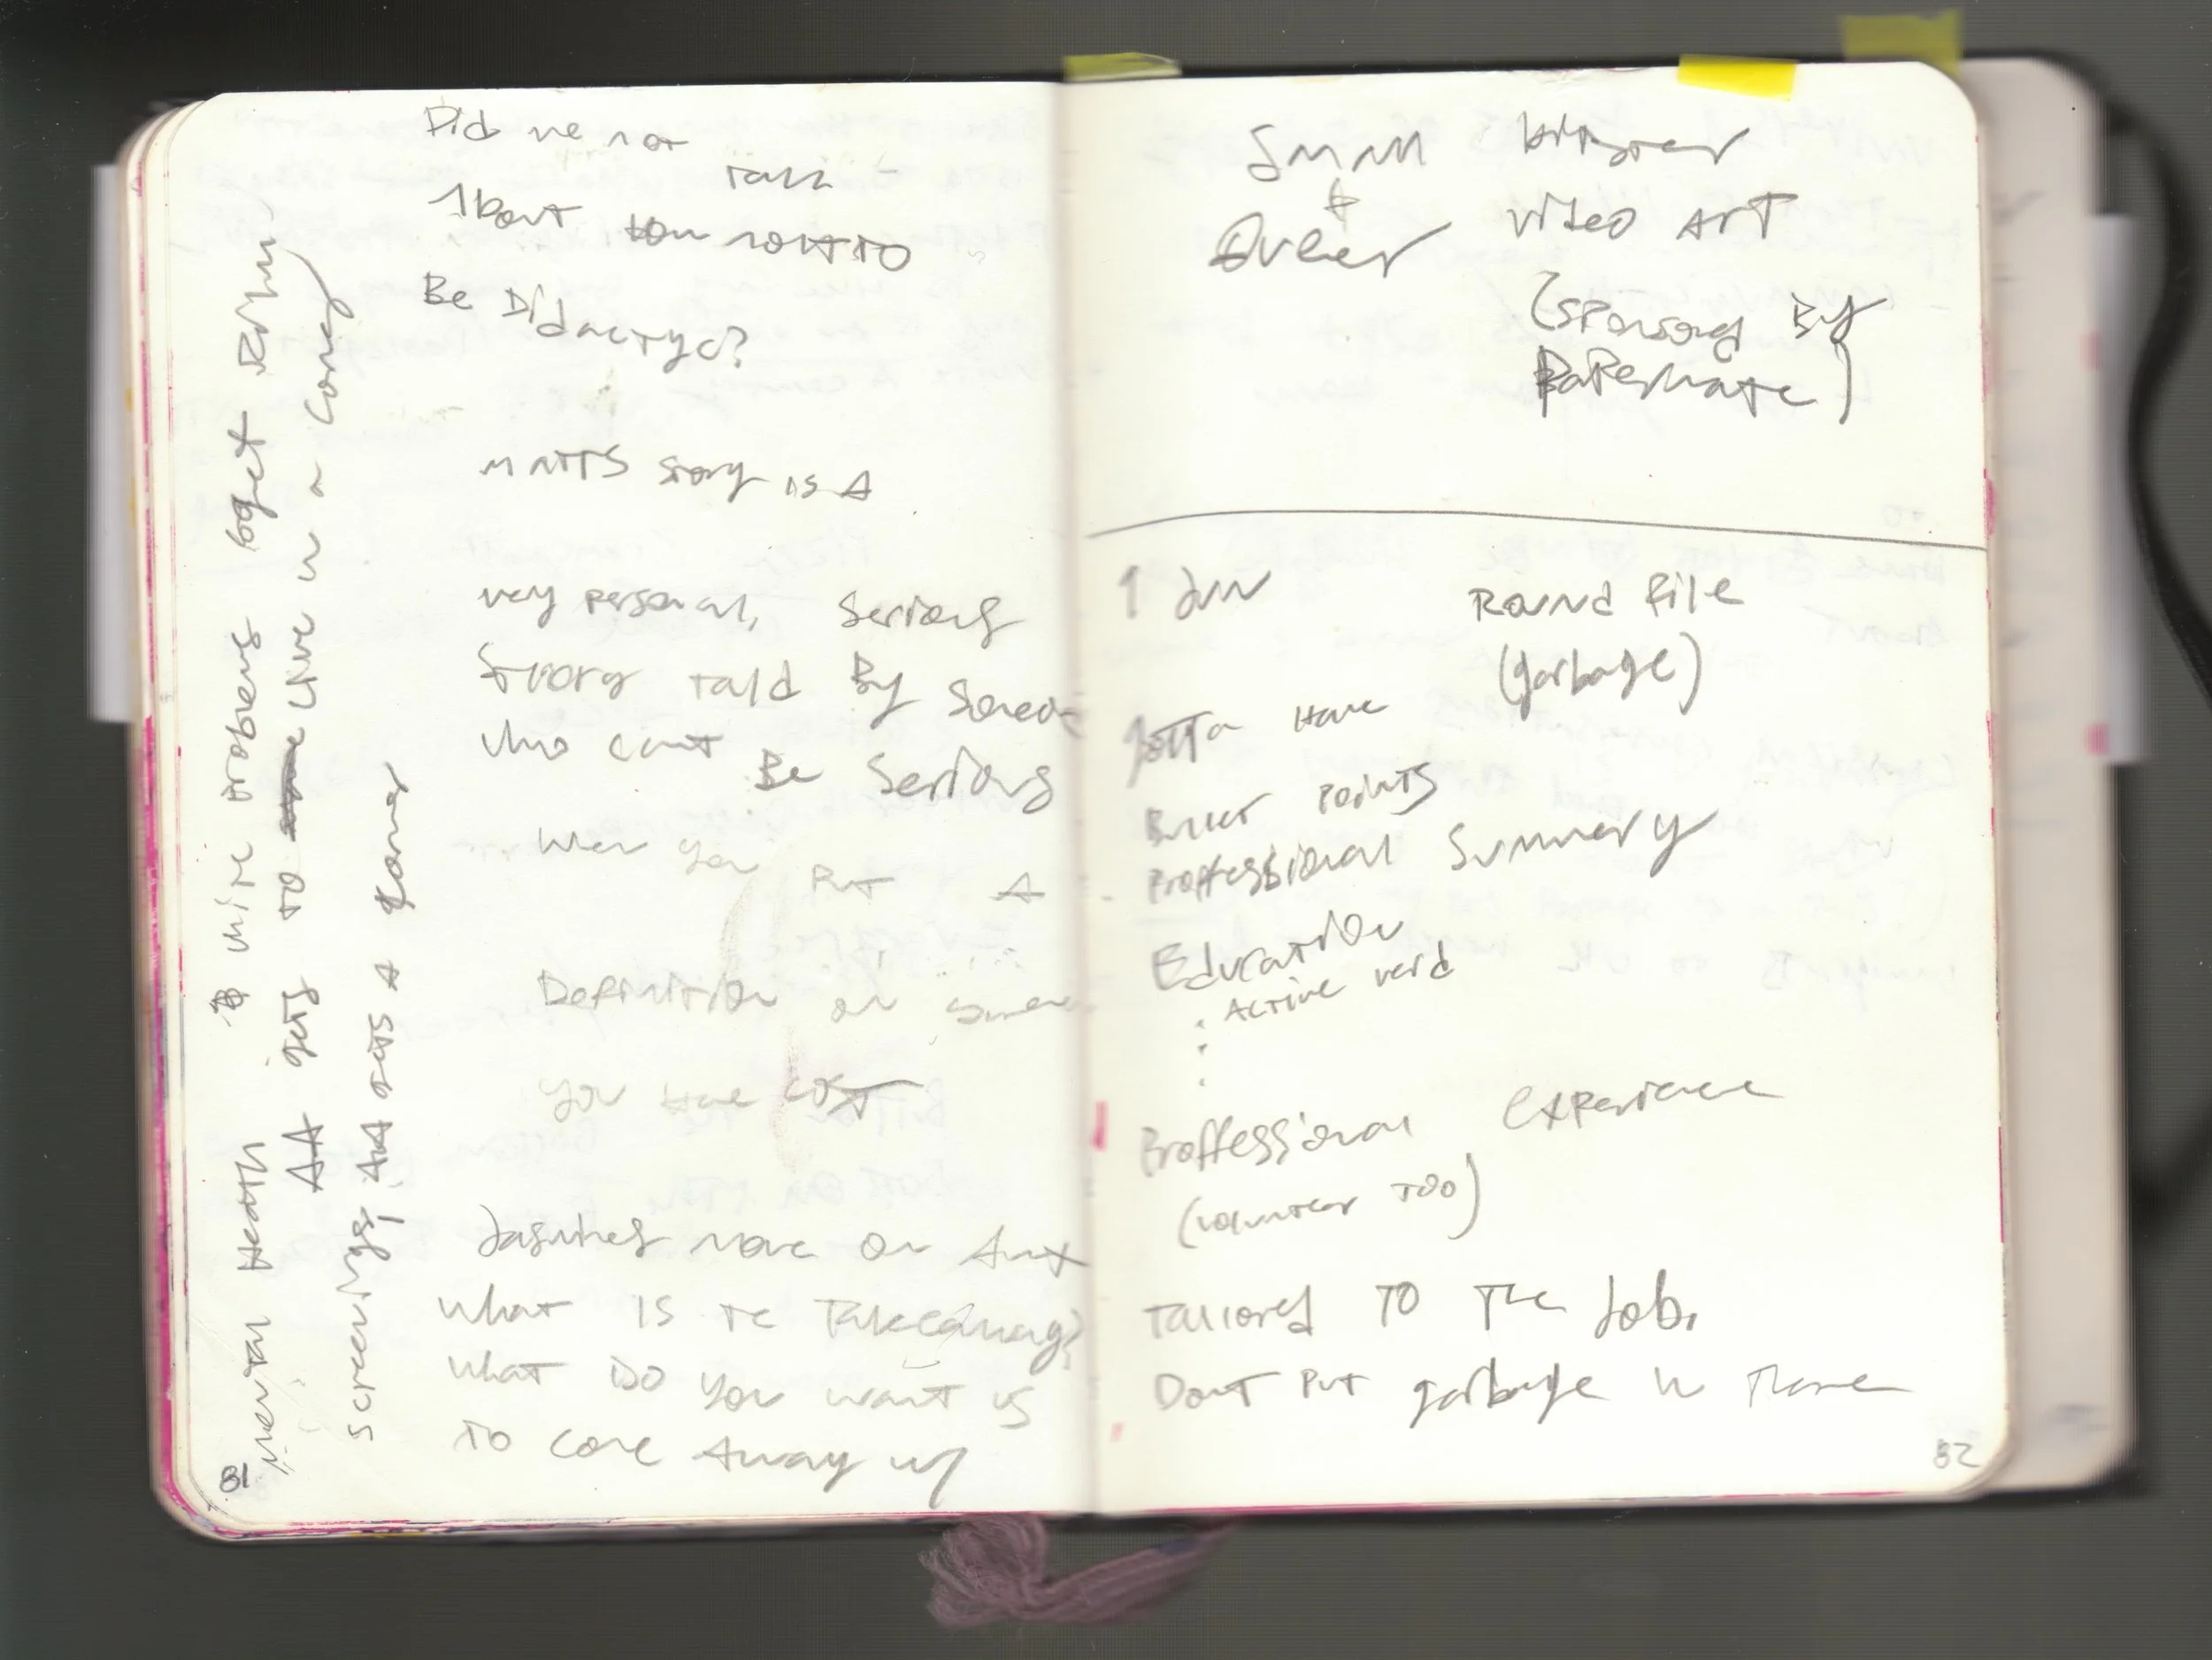 Did we not
talk
About how not to
Be Didactyc?
MATTS story is A
very personal, serious
story told By someo
who cant Be Serious
When you Put A
Definition on
you have lost
move on
What is te Takeaway?
What Do you want us
To come Away w/
81
mental Health
AA gets to Live in a comedy
screenings, AA gets A
Small
+
Queer
video ART
(sponsored By
PaPermate)
1 Jun
Round file
(garbage)
gotta Have
Bullet Points
Proffessional Summery
Education
Active verb
Proffessional experience
(volunteer too)
Tailored TO The Job.
Dont Put garbage in There
82